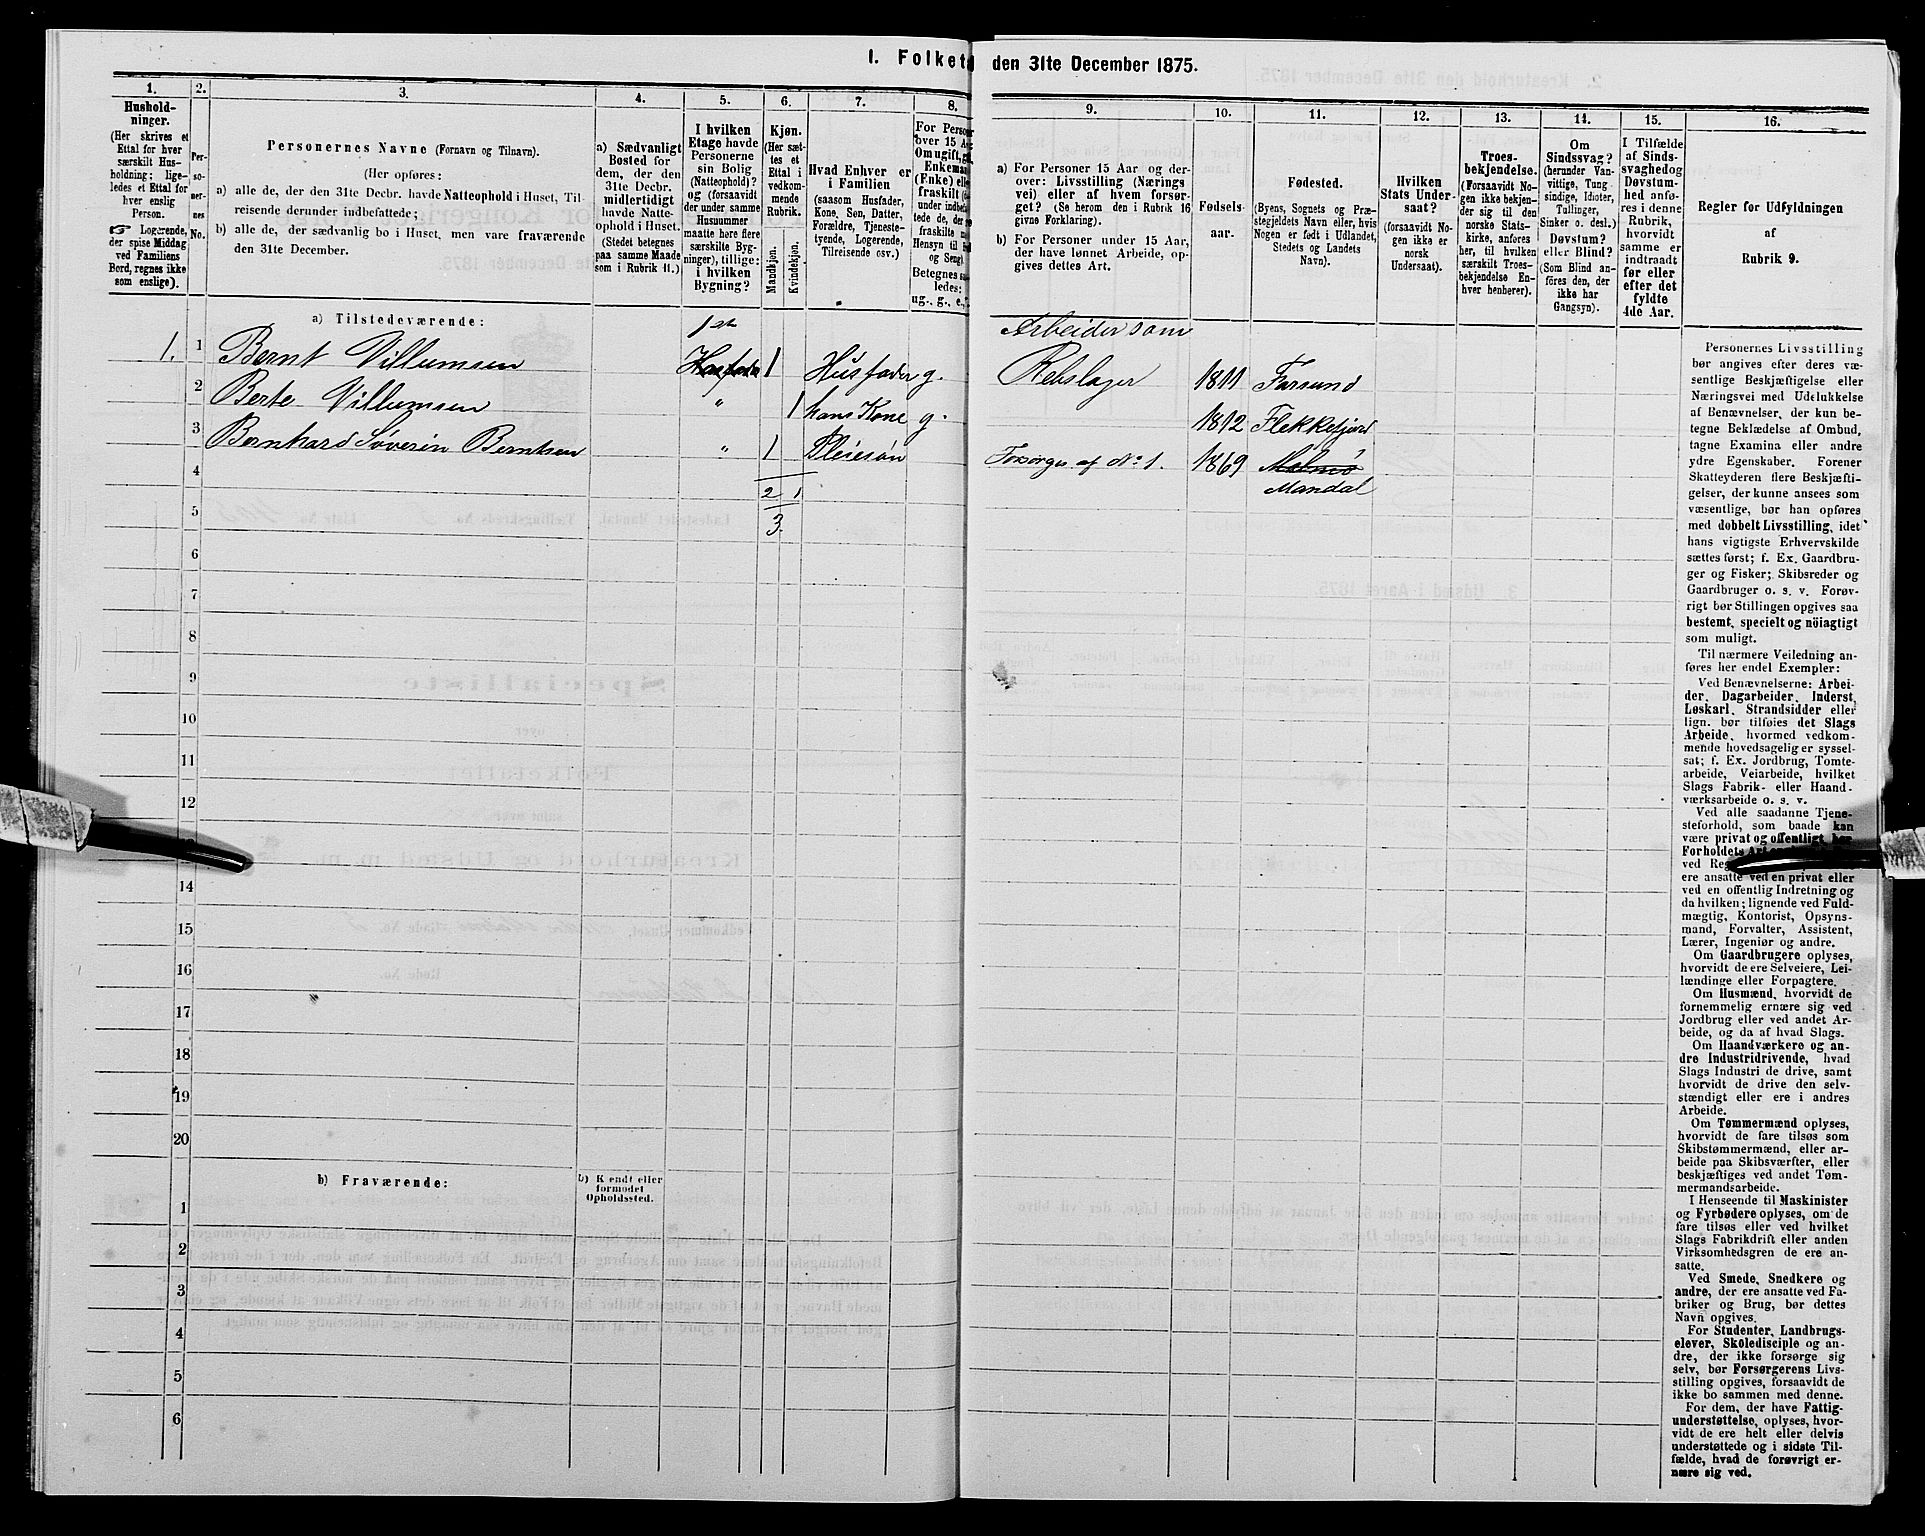 I. Folket den 31te December 1875.
1.
Hushold-
ninger.
(Her skrives et
Ettal for hver
særskilt Hus-
holdning; lige-
ledes et Ettal for
hver enslig
Person.
☞ Logerende,
der spise Middag
ved Familiens
Bord, regnes ikke
som enslige).
2.
Per-
so-
ner-
nes
No.
3.
Personernes Navne (Fornavn og Tilnavn).
(Her opføres:
a) alle de, der den 31te Decbr. havde Natteophold i Huset, Til-
reisende derunder indbefattede;
b) alle de, der sædvanlig bo i Huset, men vare fraværende
den 31te December.
4.
a) Sædvanligt
Bosted for
dem, der den
31te Decbr.
midlertidigt
havde Natte-
ophold i Huset.
(Stedet betegnes
paa samme Maade
som i Rubrik 11.)
5.
I hvilken
Etage havde
Personerne
sin Bolig
(Natteophold)?
og (forsaavidt
der under samme
Husnummer
maatte høre flere
særskilte Byg-
ninger), tillige:
i hvilken
Bygning?
6.
Kjøn.
(Her sæt-
tes et
Ettal i
vedkom-
mende
Rubrik.
Mandkjøn.
Kvindekjøn.
7.
Hvad Enhver er
i Familien
(saasom Husfader,
Kone, Søn, Datter,
Forældre, Tjeneste-
tyende, Logerende,
Tilreisende osv.)
8.
For Person
over 15 A
Om ugift,
Enkeman
(Fnke) el
fraskilt
under indbe
tede de, der
fraskilte
Hensyn til
og Seng)
Betegnes sa
ledes:
ug., g., e.,
9.
a) For Personer 15 Aar og der-
over: Livsstilling (Nærings
vei) eller af hvem forsør-
get? (Se herom den i Rubrik 16
givne Forklaring).
b) For Personer under 15 Aar,
der have lønnet Arbeide, op-
gives dettes Art.
10.
Fødsels-
aar.
11.
Fødested.
(Byens, Sognets og Præ-
stegjeldets Navn eller, hvis
Nogen er født i Udlandet,
Stedets og Landets
Navn).
12.
Hvilken
Stats Under-
saat?
(forsaavidt No-
gen ikke er
norsk
Undersaat).
13.
Troes-
bekjendelse.
(Forsaavidt No-
gen ikke bekjen-
der sig til den
norske Stats-
kirke, anføres
her, til hvilken
særskilt Troes-
bekjendelse En-
hver henhører).
14.
Om
Sindssvag?
(herunder Van-
vittige, Tung
sindige, Idioter,
Tullinger,
Sinker o. desl.)
Døvstum?
eller Blind?
(Som Blind an-
føres den, der
ikke har
Gangsyn).
15.
I Tilfælde
af Sinds-
svaghed og
Døvstum-
hed anfø-
res i denne
Rubrik,
hvorvidt
samme er
indtraadt
før eller
efter det
fyldte
4de Aar.
16.
Regler for Udfyldningen
af
Rubrik 9.
a) Tilstedeværende:
1. 1 Bernt Villumsen 1st Husfader 1 Husfader g. Arbeider som
Rebslager 1811 Farsund
2 Berte Villumsen " 1 hans Kone g. 1812 Flekkefjord
3 Bernhard Søverin Berntsen " 1 Pleiesøn Forsørges af No 1. 1869 Malmø
Mandal
4 2 1
5 3.
6
7
8
9
10
11
12
14
15
16
17
18
19
20
b) Fraværende:
b) Kjendt eller
formodet
Opholdssted.
1
2
3
4
5
6
Personernes Livsstilling
bør angives efter deres væ-
sentlige Beskjæftigelse eller
Næringsvei med Udelukkelse
af Benævnelser, der kun be-
tegne Beklædelse af Ombud,
tagne Examina eller andre
ydre Egenskaber. Forener
Skatteyderen flere Beskjæfti-
gelser, der kunne ansees som
væsentlige, bør han opføres
med dobbelt Livsstilling, idet
hans vigtigste Erhvervskilde
sættes først; f. Ex. Gaardbru-
ger og Fisker; Skibsreder og
Gaardbruger o. s. v. Forøv-
rigt bør Stillingen opgives saa
bestemt, specielt og nöiagtigt
som muligt.
Til nærmere Veiledning an-
føres her endel Exempler:
Ved Benævnelserne: Arbei-
der, Dagarbeider, Inderst,
Løskarl, Strandsidder eller
lign. bør tilføies det Slags
Arbeide, hvormed vedkom-
mende hovedsagelig er syssel-
sat; f. Ex. Jordbrug, Tomte-
arbeide, Veiarbeide, hvilket
Slags Fabrik- eller Haand-
værksarbeide o. s. v.
Ved alle saadanne Tjene-
steforhold, som baade kan
være privat og offentligt, bør
Forholdets Art
ved Re
ere ansatte ved en privat eller
ved en offentlig Indretning og
da hvilken; lignende ved Fuld-
mægtig, Kontorist, Opsyns-
mand, Forvalter, Assistent,
Lærer, Ingeniør og andre.
Om Gaardbrugere oplyses,
hvorvidt de ere Selveiere, Lei-
lændinge eller Forpagtere.
Om Husmænd, hvorvidt de
fornemmelig ernære sig ved
Jordbrug eller ved andet Ar-
beide, og da af hvad Slags.
Om Haandværkere og an-
dre Industridrivende, hvad
Slags Industri de drive, samt
hvorvidt de drive den selv-
stændigt eller ere i andres
Arbeide.
Om Tømmermænd oplyses,
hvorvidt de fare tilsøs som
Skibstømmermænd, eller ar-
beide paa Skibsværfter, eller
beskjæftiges ved andet Tøm-
mermandsarbeide.
I Henseende til Maskinister
og Fyrbødere oplyses, om de
fare tilsøs eller ved hvilket
Slags Fabrikdrift eller anden
Virksomhedsgren de ere an-
satte.
Ved Smede, Snedkere og
andre, der ere ansatte ved Fa-
briker og Brug, bør dettes
Navn opgives.
For Studenter, Landbrugs-
elever, Skoledisciple og an-
dre, der ikke forsørge sig
selv, bør Forsørgerens Livs-
stilling opgives, forsaavidt de
ikke bo sammen med denne.
For dem, der have Fattig-
understøttelse, oplyses, hvor-
vidt de ere helt eller delvis
understøttede og i sidste Til-
fælde, hvad de forøvrigt er-
nære sig ved.